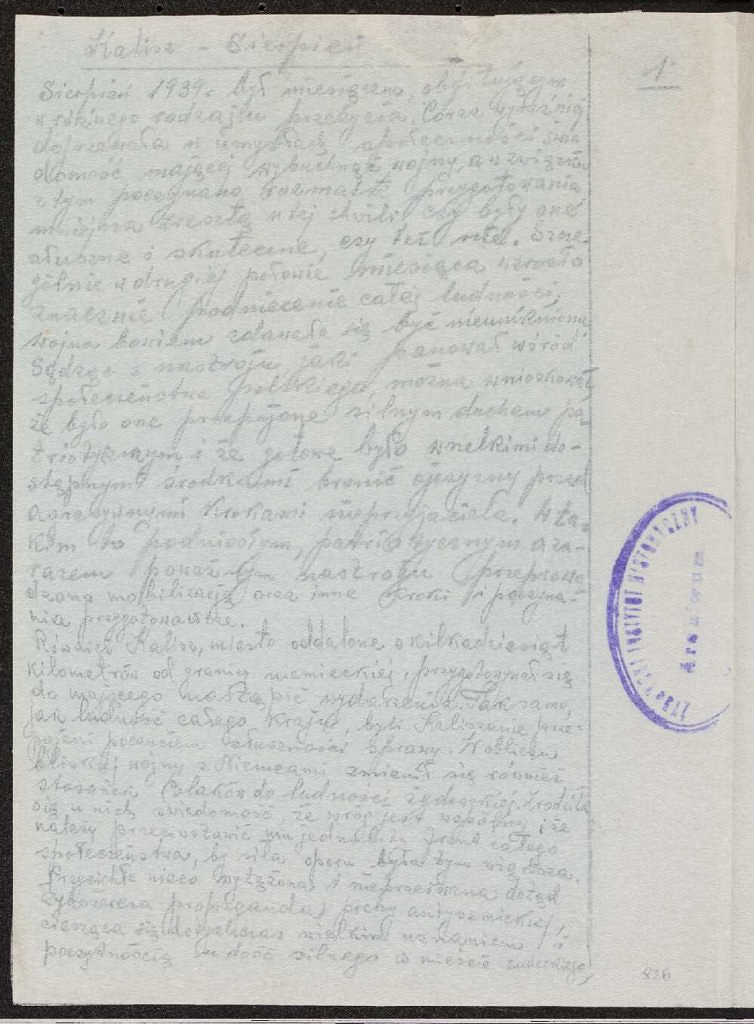 Kalisz - Sierpień
1
Sierpień 1939 r. był miesiącem, obfitującym
w różnego rodzaju przeżycia. Coraz wyraźniej
dojrzewała w umysłach społeczności świa
domość mającej wybuchnąć wojny, a w związku
z tym poczynano rozmaite przygotowania
mniejsza zresztą w tej chwili czy były one
słuszne i skuteczne, czy też nie. Szcze
gólnie w drugiej połowie miesiąca wzrosło
znacznie podniecenie całej ludności,
wojna bowiem zdawała się być nieunikniona
Sądząc z nastroju, jaki panował wśród
społeczeństwa polskiego można wnioskować,
że było one przepojone silnym duchem pa-
triotycznym i że gotowe było wszelkimi do-
stępnymi środkami bronić ojczyzny przed
agresywnymi krokami nieprzyjaciela. W ta-
kim to podniosłym, patriotycznym a za-
razem poważnym nastroju przeprowa
dzono mobilizację oraz inne kroki i poczyna-
nia przygotowawcze.
Również Kalisz, miasto oddalone o kilkadziesiąt
kilometrów od granicy niemieckiej, przygotowywał się
do mającego nastąpić wydarzenia. Tak samo,
jak ludność całego kraju, byli Kaliszanie prze-
pojeni poczuciem słuszności sprawy. W obliczu
bliskiej wojny z Niemcami zmienił się również
stosunek Polaków do ludności żydowskiej. Zrodziła
się u nich świadomość, że wróg jest wspólny i że
należy przeciwstawić mu jednolity front całego
społeczeństwa, by siła oporu była tym większa.
Przycichła nieco wytężona i nieprzerwana dotąd
propaganda prasy antysemickiej,
ciesząca się dotychczas wielkim uznaniem i
poczytnością w dość silnego w mieście endeckiego,
ŻYDOWSKI INSTYTUT HISTORYCZNY
Archiwum
826